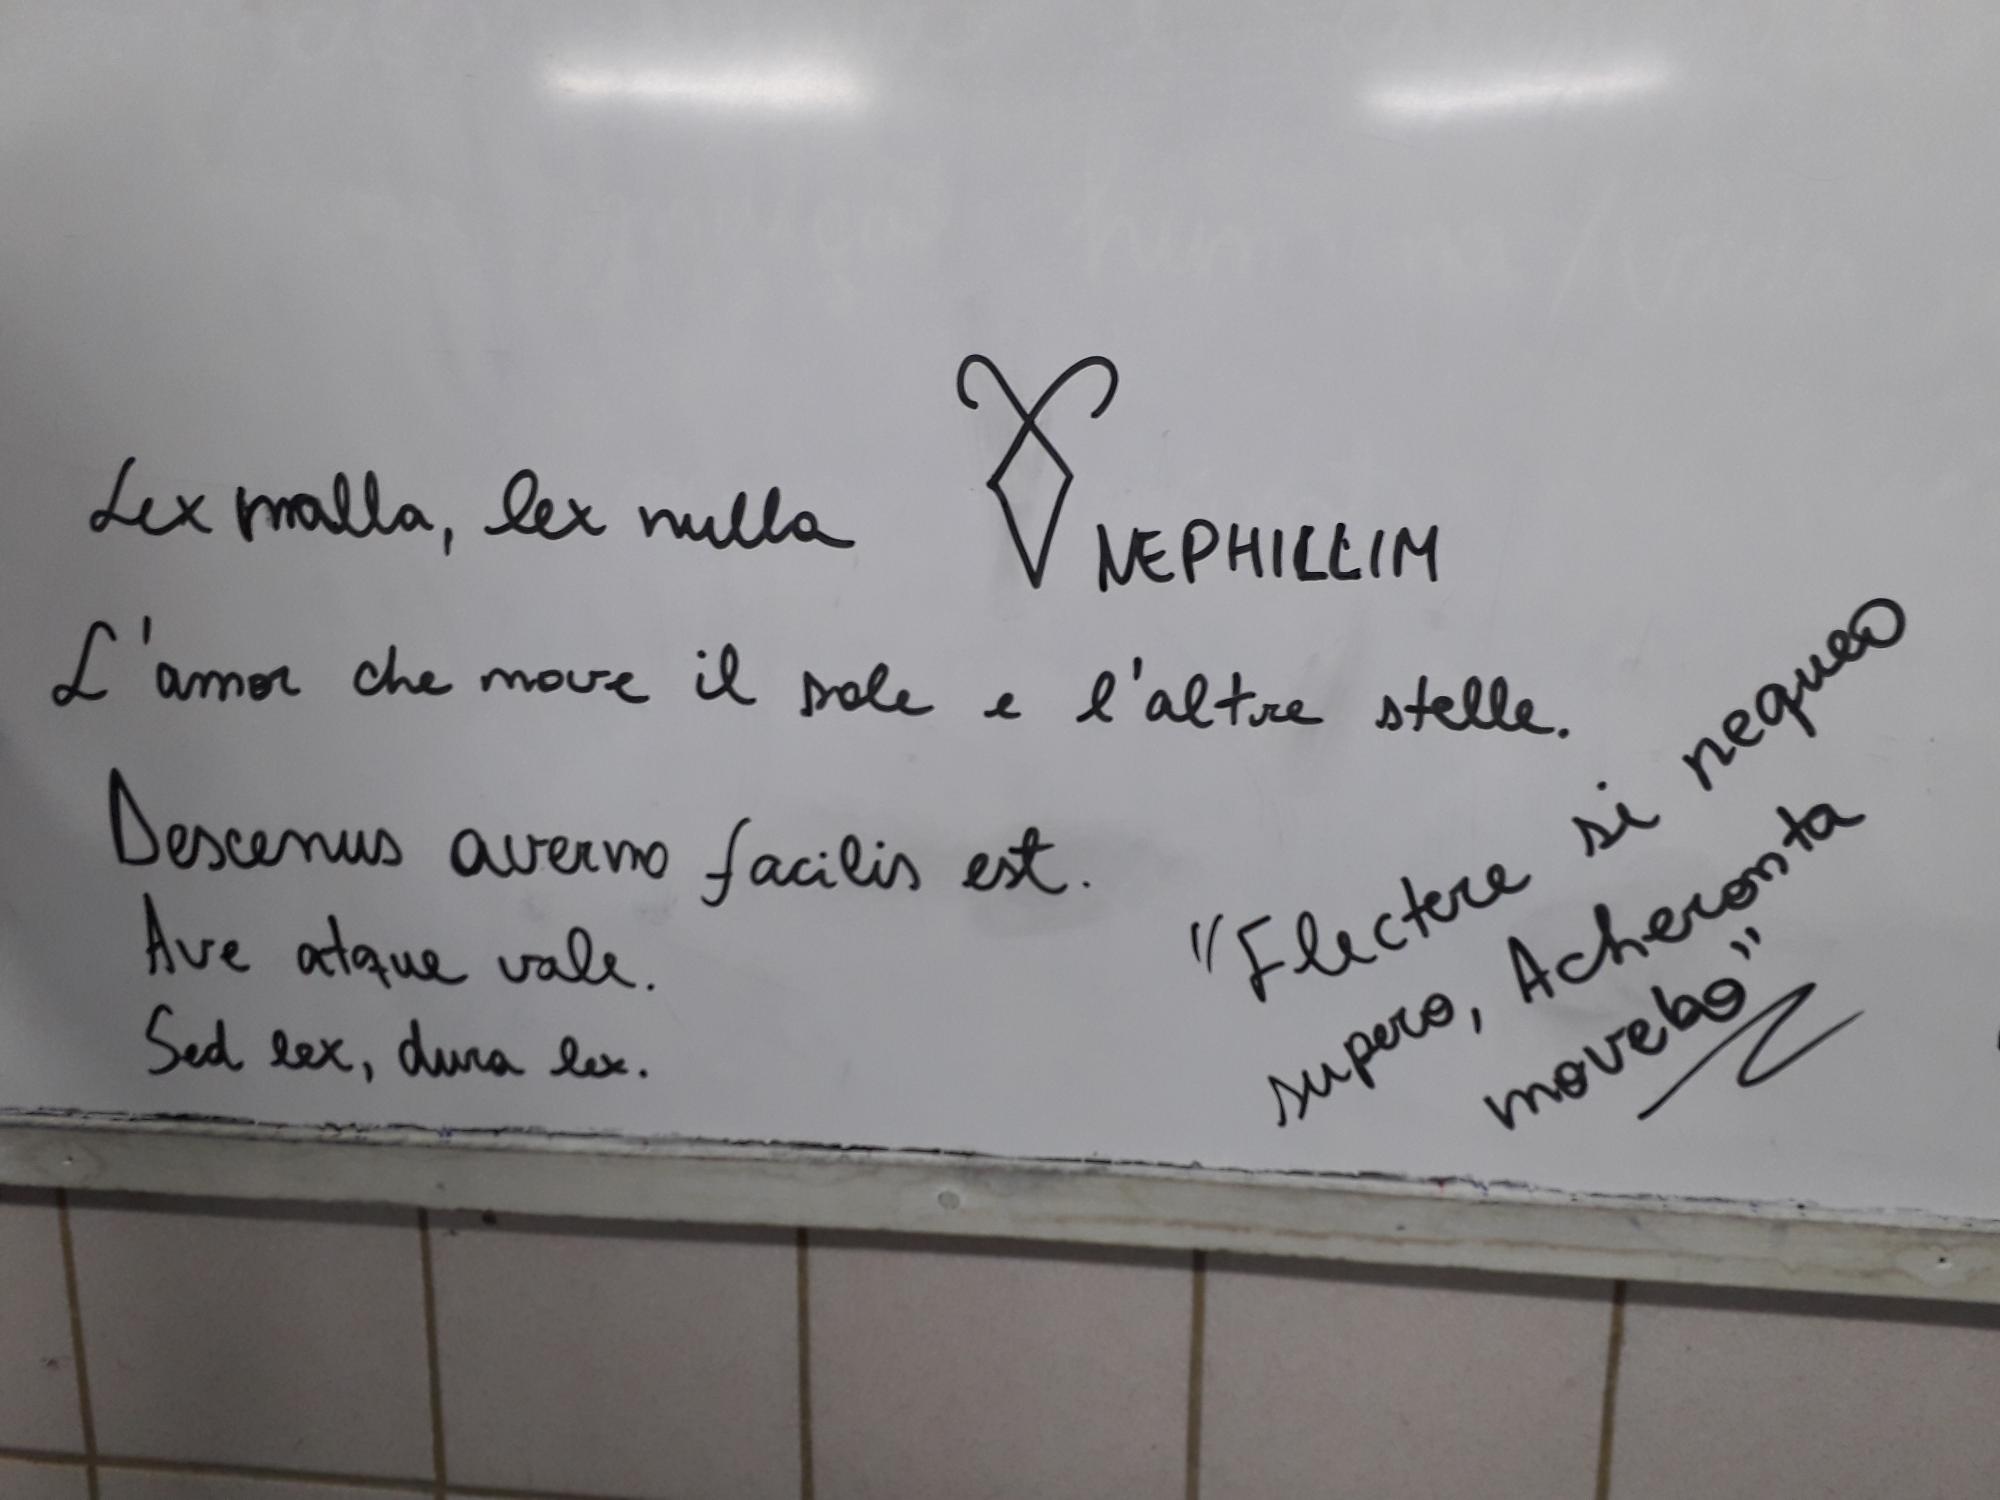 Lex malla, lex nulla
NEPHILLIM
L'amor che move il sole e l'altre stelle.
Descenus averno facilis est.
Ave atque vale.
Sed lex, dura lex.
"Flectere si nequeo
supero, Acheronta
movebo"